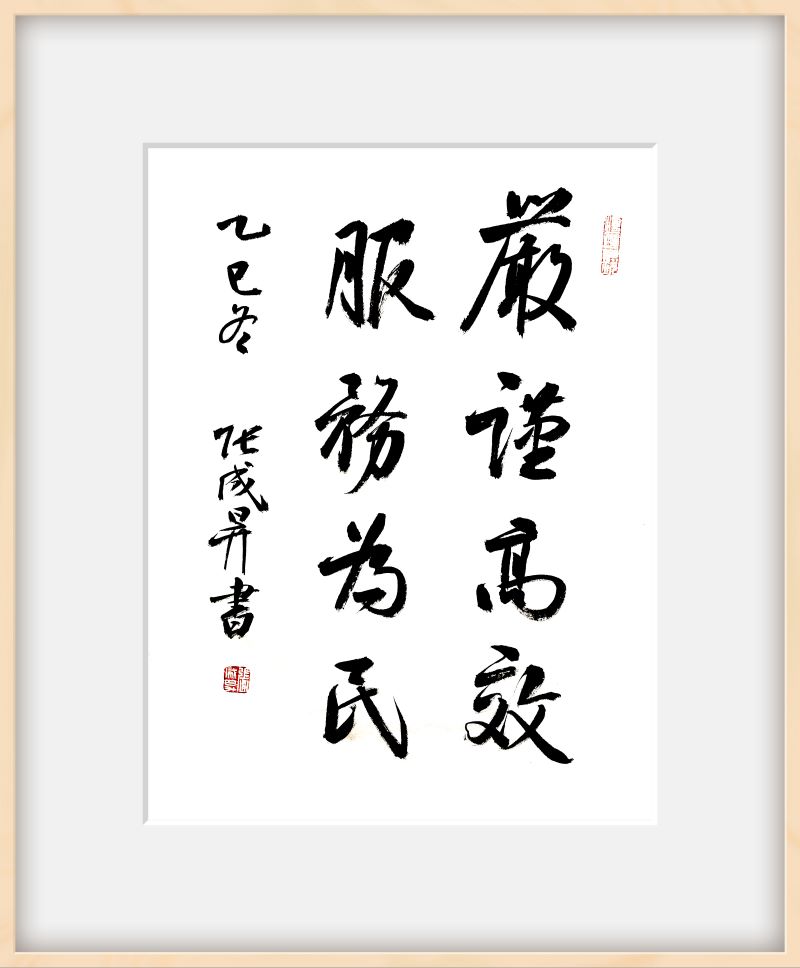 嚴謹高效
服務為民
乙巳冬 張成昇書